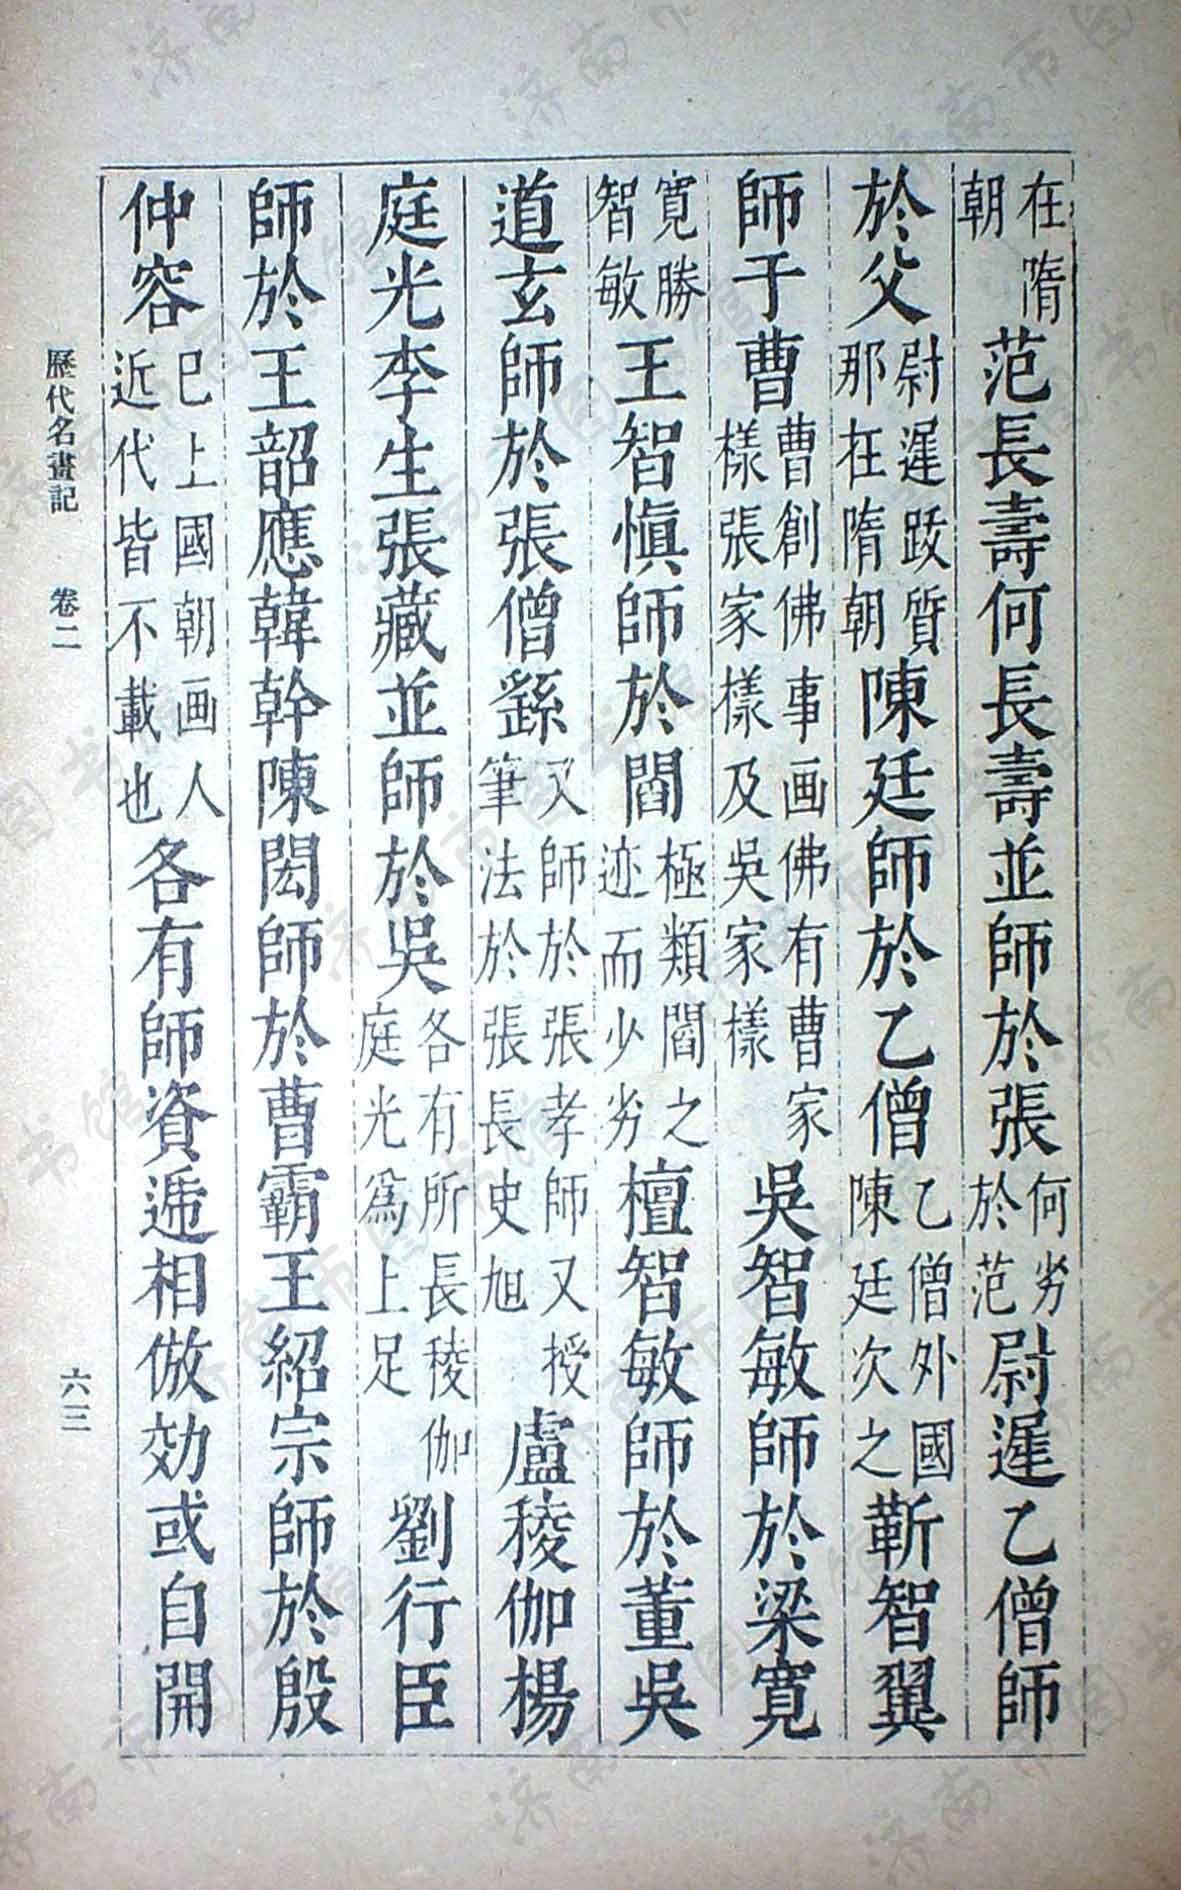 在隋朝范長壽何長壽並師於張何劣於范尉遲乙僧師
於父尉遲跋質那在隋朝陳廷師於乙僧乙僧外國陳廷次之靳智翼
師于曹曹創佛事画佛有曹家樣張家樣及吳家樣吳智敏師於梁寬
寬勝智敏王智愼師於閻極類閻之迹而少劣檀智敏師於董吳
道玄師於張僧繇又師於張孝師又授筆法於張長史旭盧稜伽楊
庭光李生張藏並師於吳各有所長稜伽庭光爲上足劉行臣
師於王韶應韓幹陳閎師於曹霸王紹宗師於殷
仲容已上國朝画人近代皆不載也各有師資遞相倣効或自開
歷代名畫記 卷二 六三
济南市图书馆